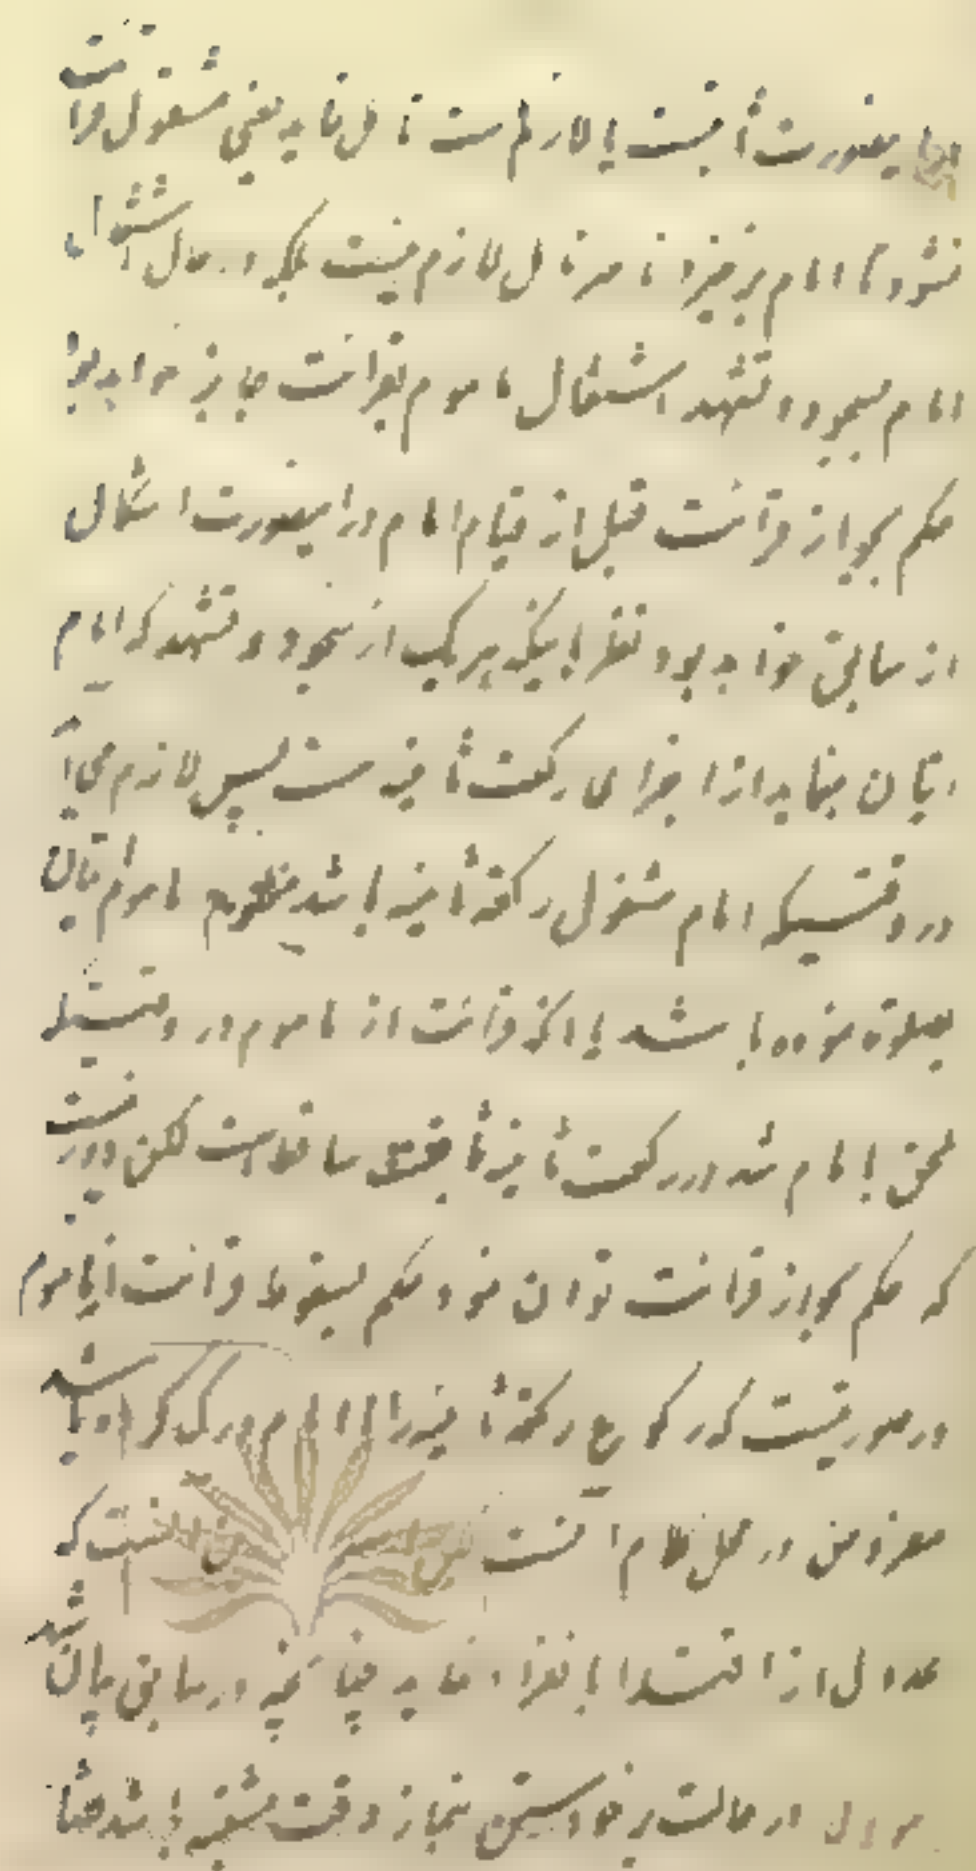 اینصورت ثابتست یا لازم است تامل نماید یعنی مشغول قرائت
نشود تا امام برخیزد تا مر تامل لازم نیست بلکه در حال اشتغال
امام بسجود و تشهد اشتغال ماموم بقرائت جایز خواهد بود
حکم بجواز قرائت قبل از قیام امام در اینصورت اشکال
از سابق خواهد بود نظر باینکه هر یک از سجود و تشهد که امام
اتیان مینماید از اجزای رکعت ثانیه است پس لازم می آید
در وقتیکه امام مشغول رکعة ثانیه باشد ماموم اتیان
بصلوة نموده باشد با آنکه قرائت از ماموم در وقتیکه
ملحق بامام شد در رکعت ثانیه ساقط است لکن در
که حکم بجواز قرائت توان نمود حکم بسقوط قرائت از ماموم
در صورتیست که رکوع رکعة ثانیه را با امام درک کرده باشد
مفروض در محل کلام آنست که
عدول از اقتدا بانفراد نماید چنانچه در سابق بیان شد
در حالت برخواستن بنماز وقت مشتبه باشد